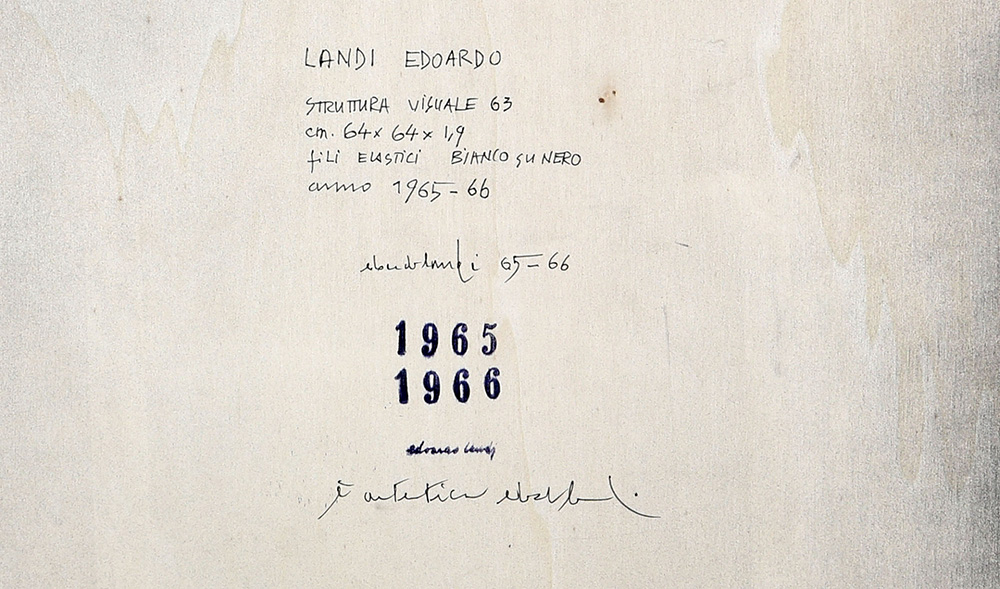 LANDI EDOARDO
STRUTTURA VISUALE 63
cm. 64 x 64 x 1,9
fili ELASTICI BIANCO SU NERO
anno 1965-66
65-66
1965
1966
edoardo landi
è autentica